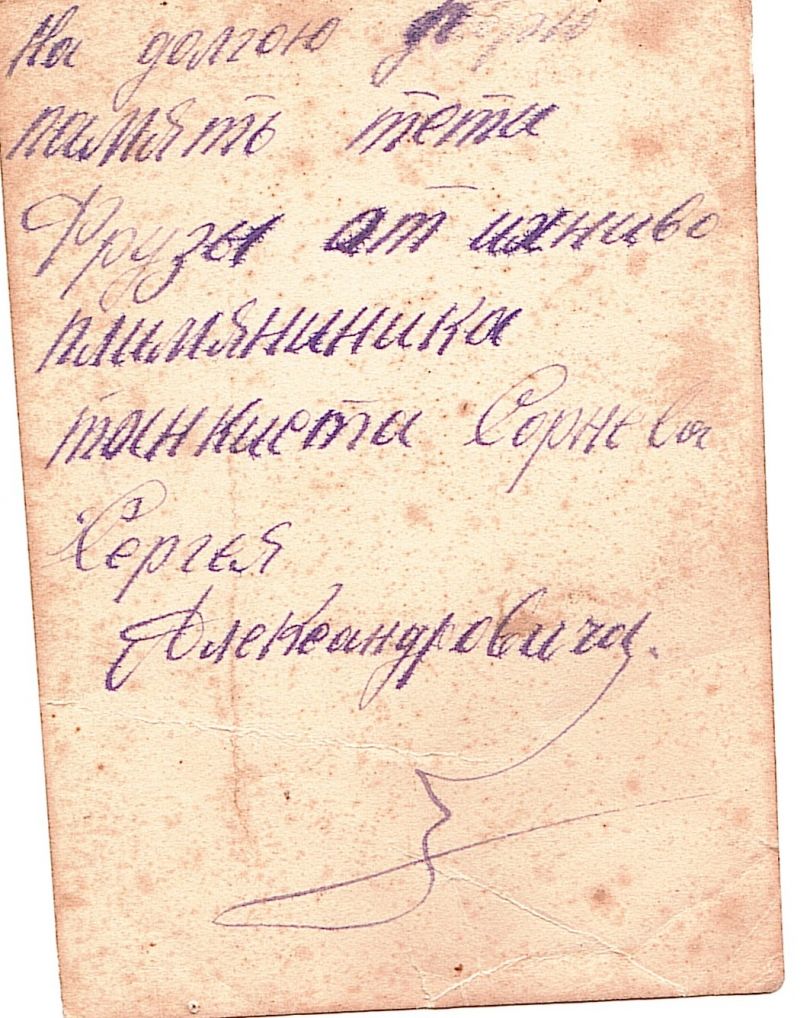 На долгою добрую
память тети
Фрузы от ихниво
плимяниника
танкиста Сорнева
Сергея
Александровича.